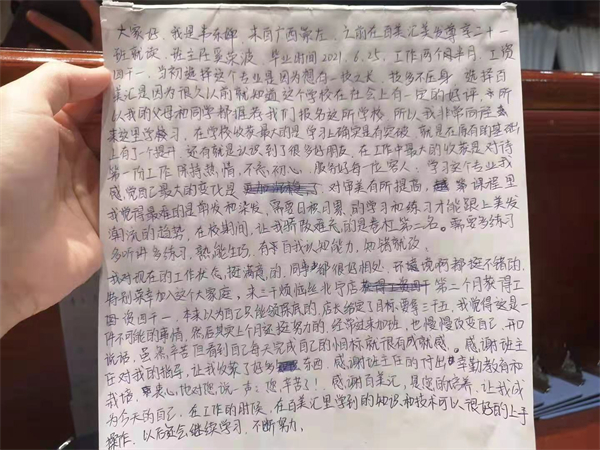 大家好，我是韦东娜，来自广西崇左，之前在百美汇美发尊享二十一
班就读，班主任吴荣波，毕业时间2021.6.25，工作两个月半月，工资
四千一，当初选择这个专业是因为想有一技之长，技多不压身，选择百
美汇是因为很久以前就知道这个学校在社会上有一定的好评，所
以我的父母和同学都推荐我们报名这所学校，所以我非常向往来
来这里学习，在学校收获最大的是学习上确实是有突破，就是在原有的基础
上有了个提升，还有就是认识到了很多好朋友，在工作中最大的收获是对待
第一份工作保持热情，不忘初心，服务好每一位客人，学习这个专业我
感觉自己最大的变化是 对审美有所提高，课程里
我觉得最难的是剪发和染发，需要日积月累的学习和练习才能跟上美发
潮流的趋势，在校期间，让我骄傲难忘的是卷杠第二名。需要多练习
多听讲多练习，熟能生巧，有自我认知能力，知错就改。
我对现在的工作状态，挺满意的，同事都很好相处，环境啊都挺不错的，
特别荣幸加入这个大家庭，来三千烦恼丝北宁店 第二个月获得工
资四千一，本来以为自己只能领保底的，店长给了目标要拿三千五，我觉得这是一
件不可能的事情，然后其实上个月还挺努力的，经常过来加班，也慢慢改变自己，开口
说话，虽然辛苦但看到自己每天完成自己的目标就很有成就感。感谢班主
任对我的指导，让我收获了好多东西，感谢班主任的付出，辛勤教育和
栽培，衷心地对您说一声：您辛苦了！感谢百美汇，是您的培养，让我成
为今天的自己，在工作的时候，在百美汇里学到的知识和技术可以很好的上手
操作，以后还会继续学习，不断努力。